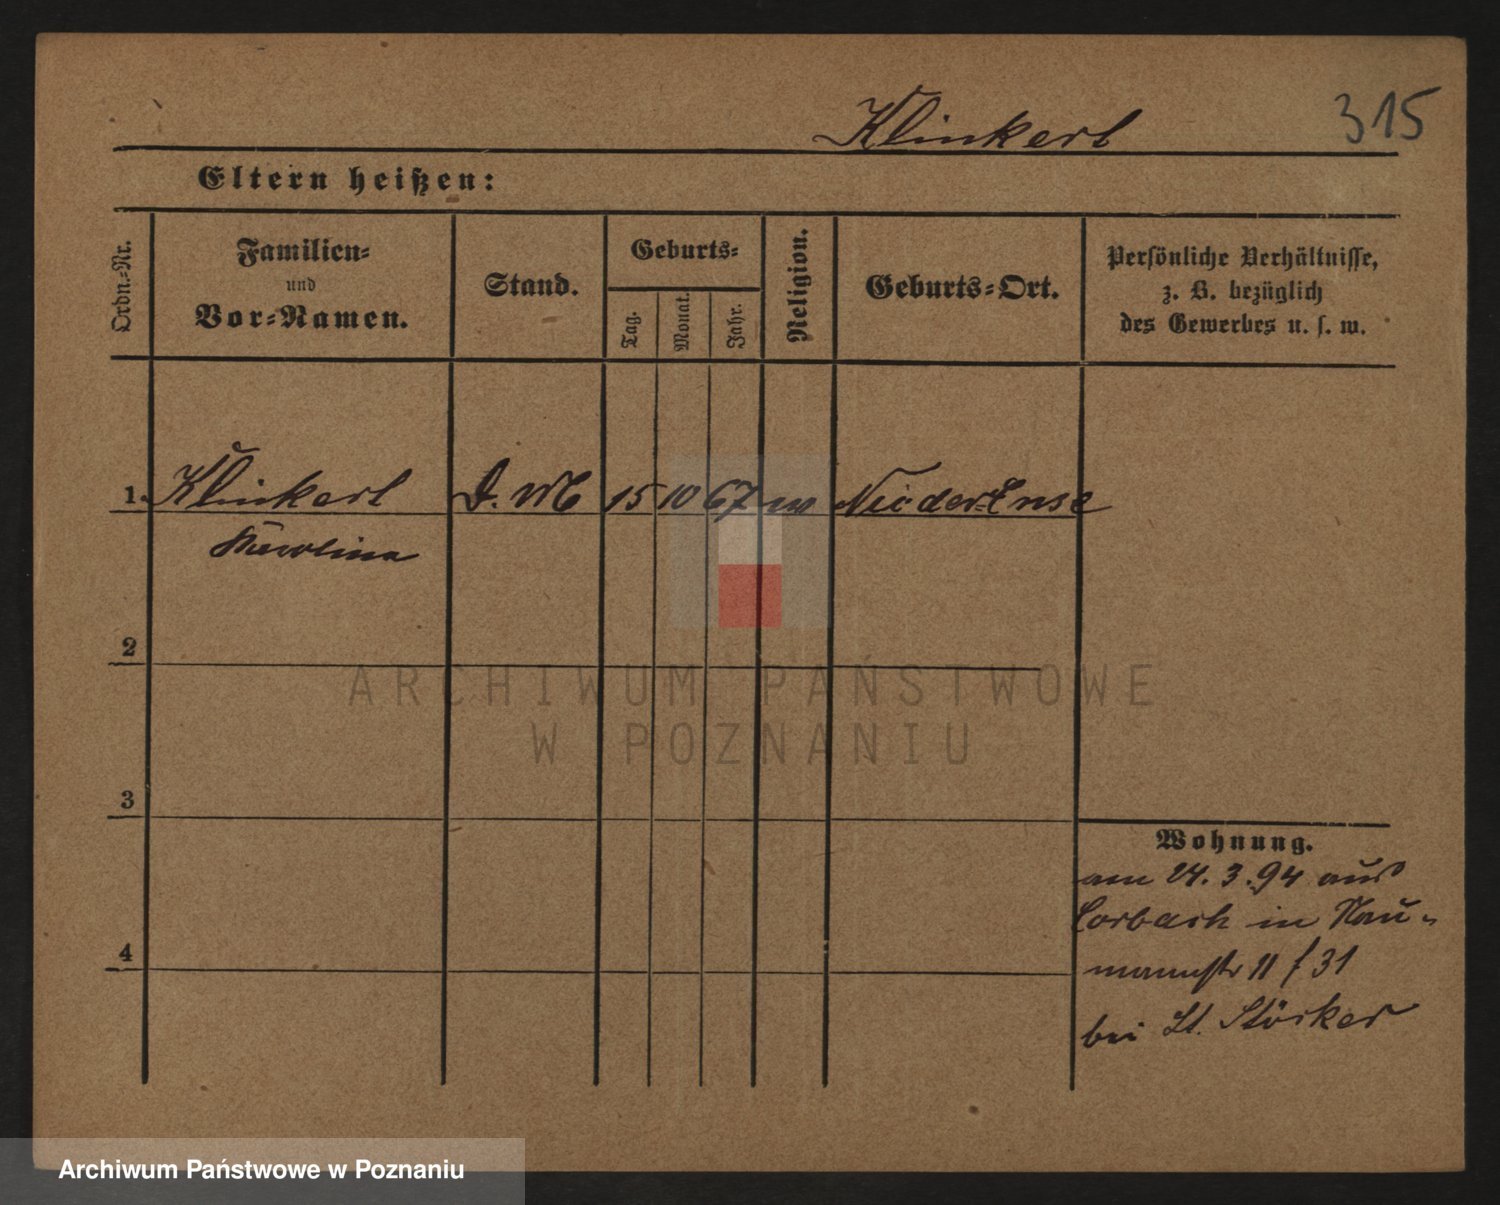 Klinkert 315
Eltern heißen:
Ordn.-Nr.
Familien-
und
Vor-Namen.
Stand.
Geburts-
Tag.
Monat.
Jahr.
Religion.
Geburts-Ort.
Persönliche Verhältnisse,
z. B. bezüglich
des Gewerbes u. s. w.
1. Klinkert D. M 15 10 67 Nieder-Ense
Karolina
2
ARCHIWUM PAŃSTWOWE
W POZNANIU
3
Wohnung.
am 24. 3. 94 aus
Corbach in Nau-
mannstr 11 f 31
bei Lt. Störker
4
Archiwum Państwowe w Poznaniu